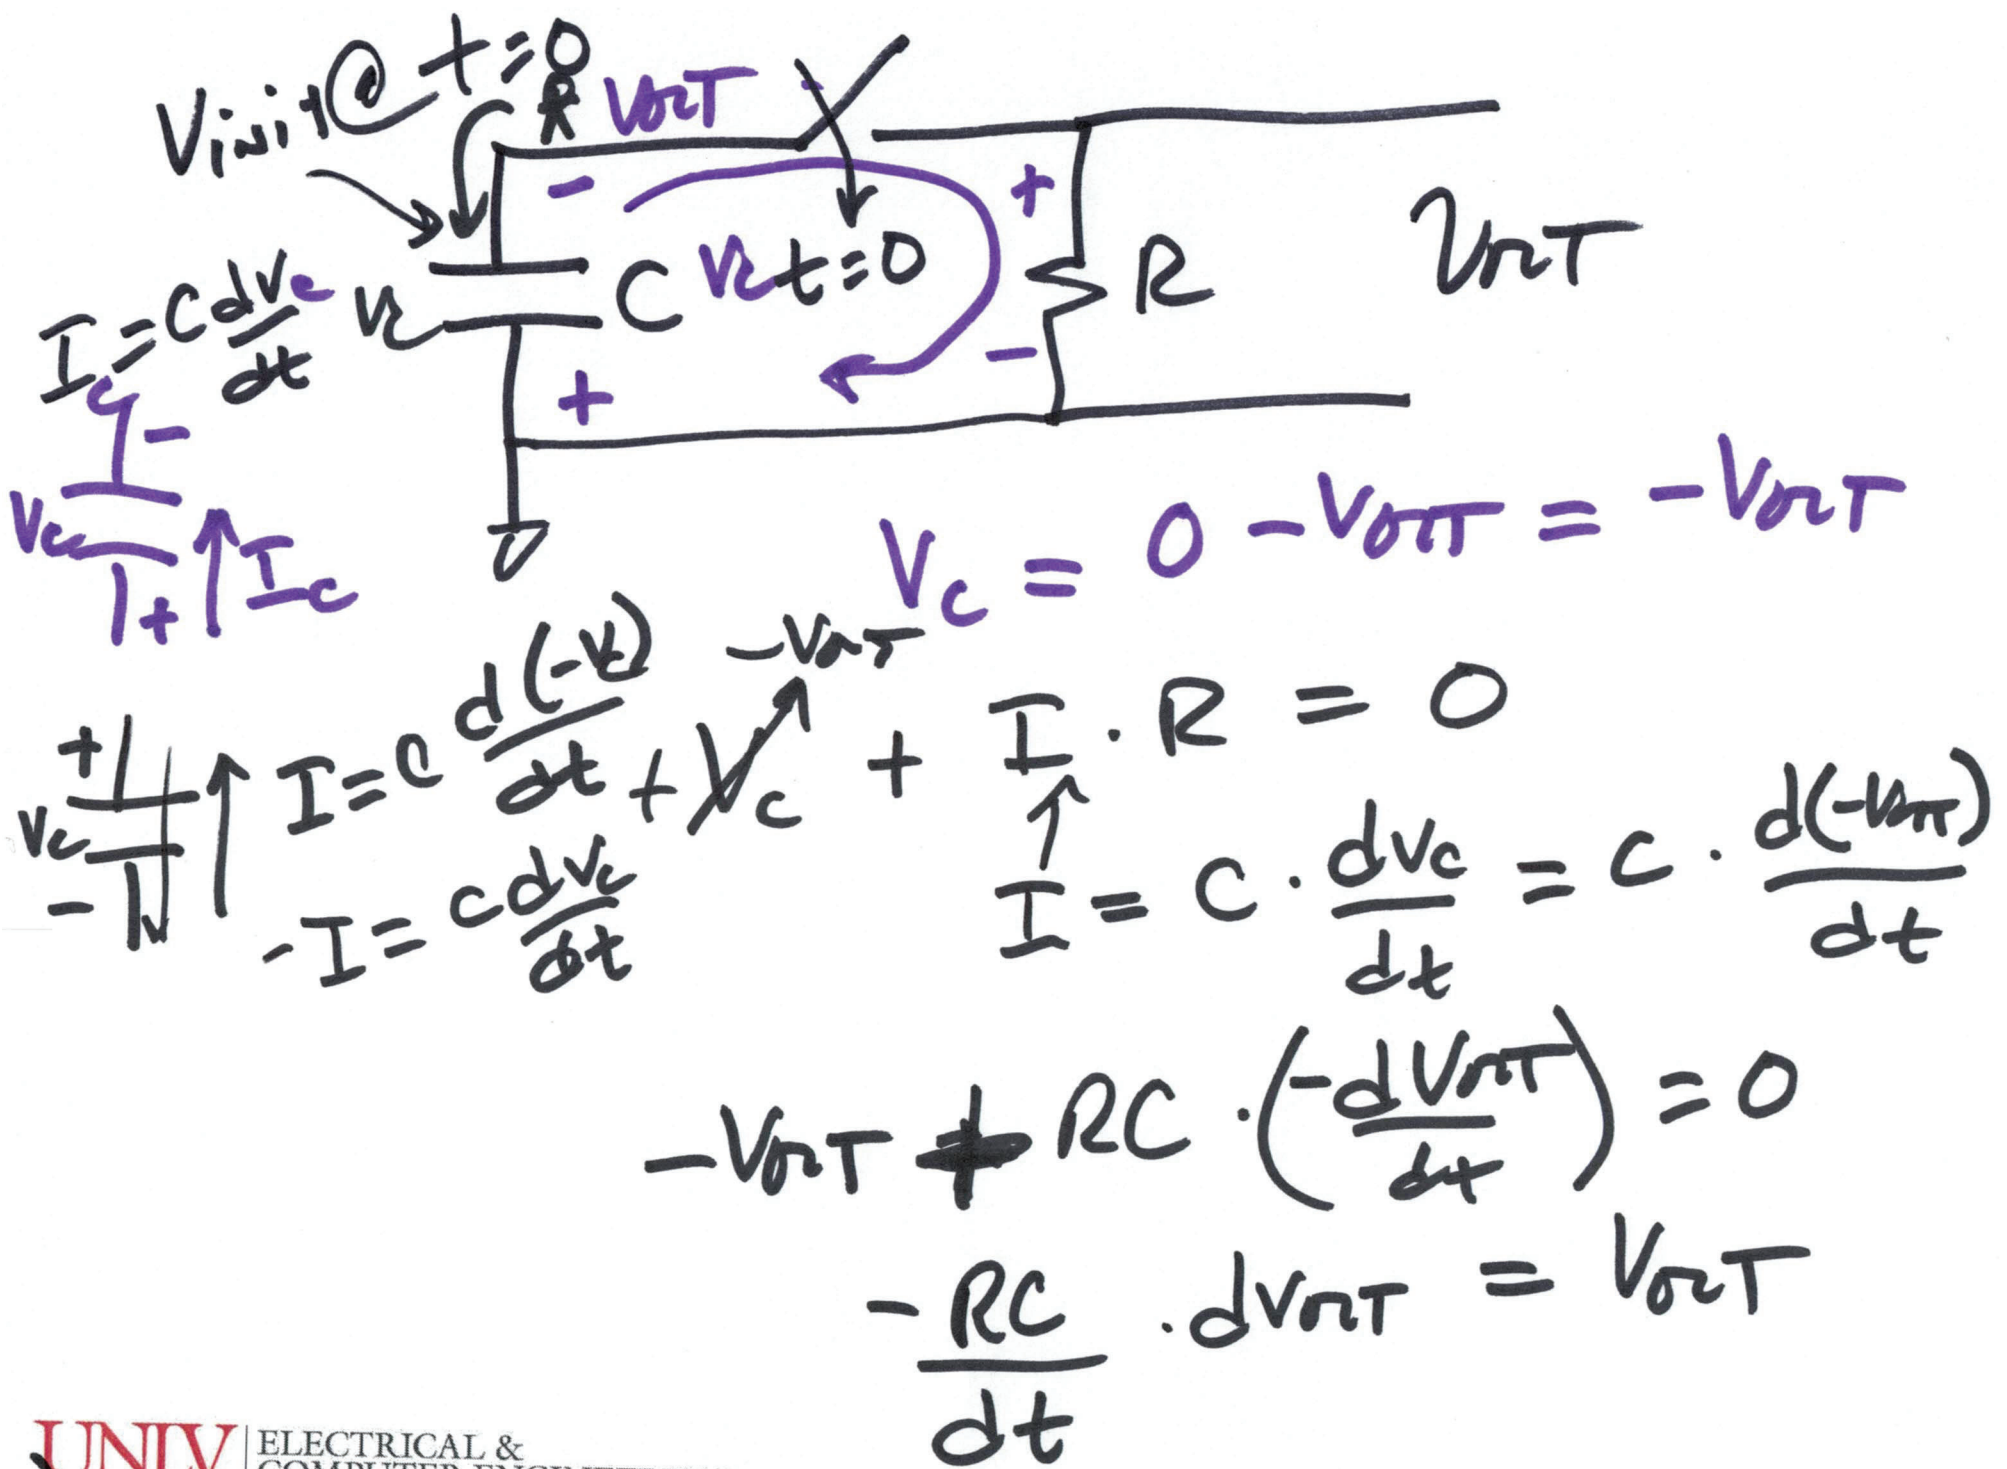 Vinit @ t=0
VOUT
-
+
t=0
VOUT
I = C dVc/dt
Vc
C
Vc
R
-
+
C
-
Vc
+
Ic
Vc = 0 - VOUT = -VOUT
-VOUT
+ Vc + I · R = 0
+
Vc
-
I = C d(-Vc)/dt
-I = C dVc/dt
I = C · dVc/dt = C · d(-VOUT)/dt
-VOUT + RC · (-dVOUT/dt) = 0
-RC/dt · dVOUT = VOUT
UNLV
ELECTRICAL &